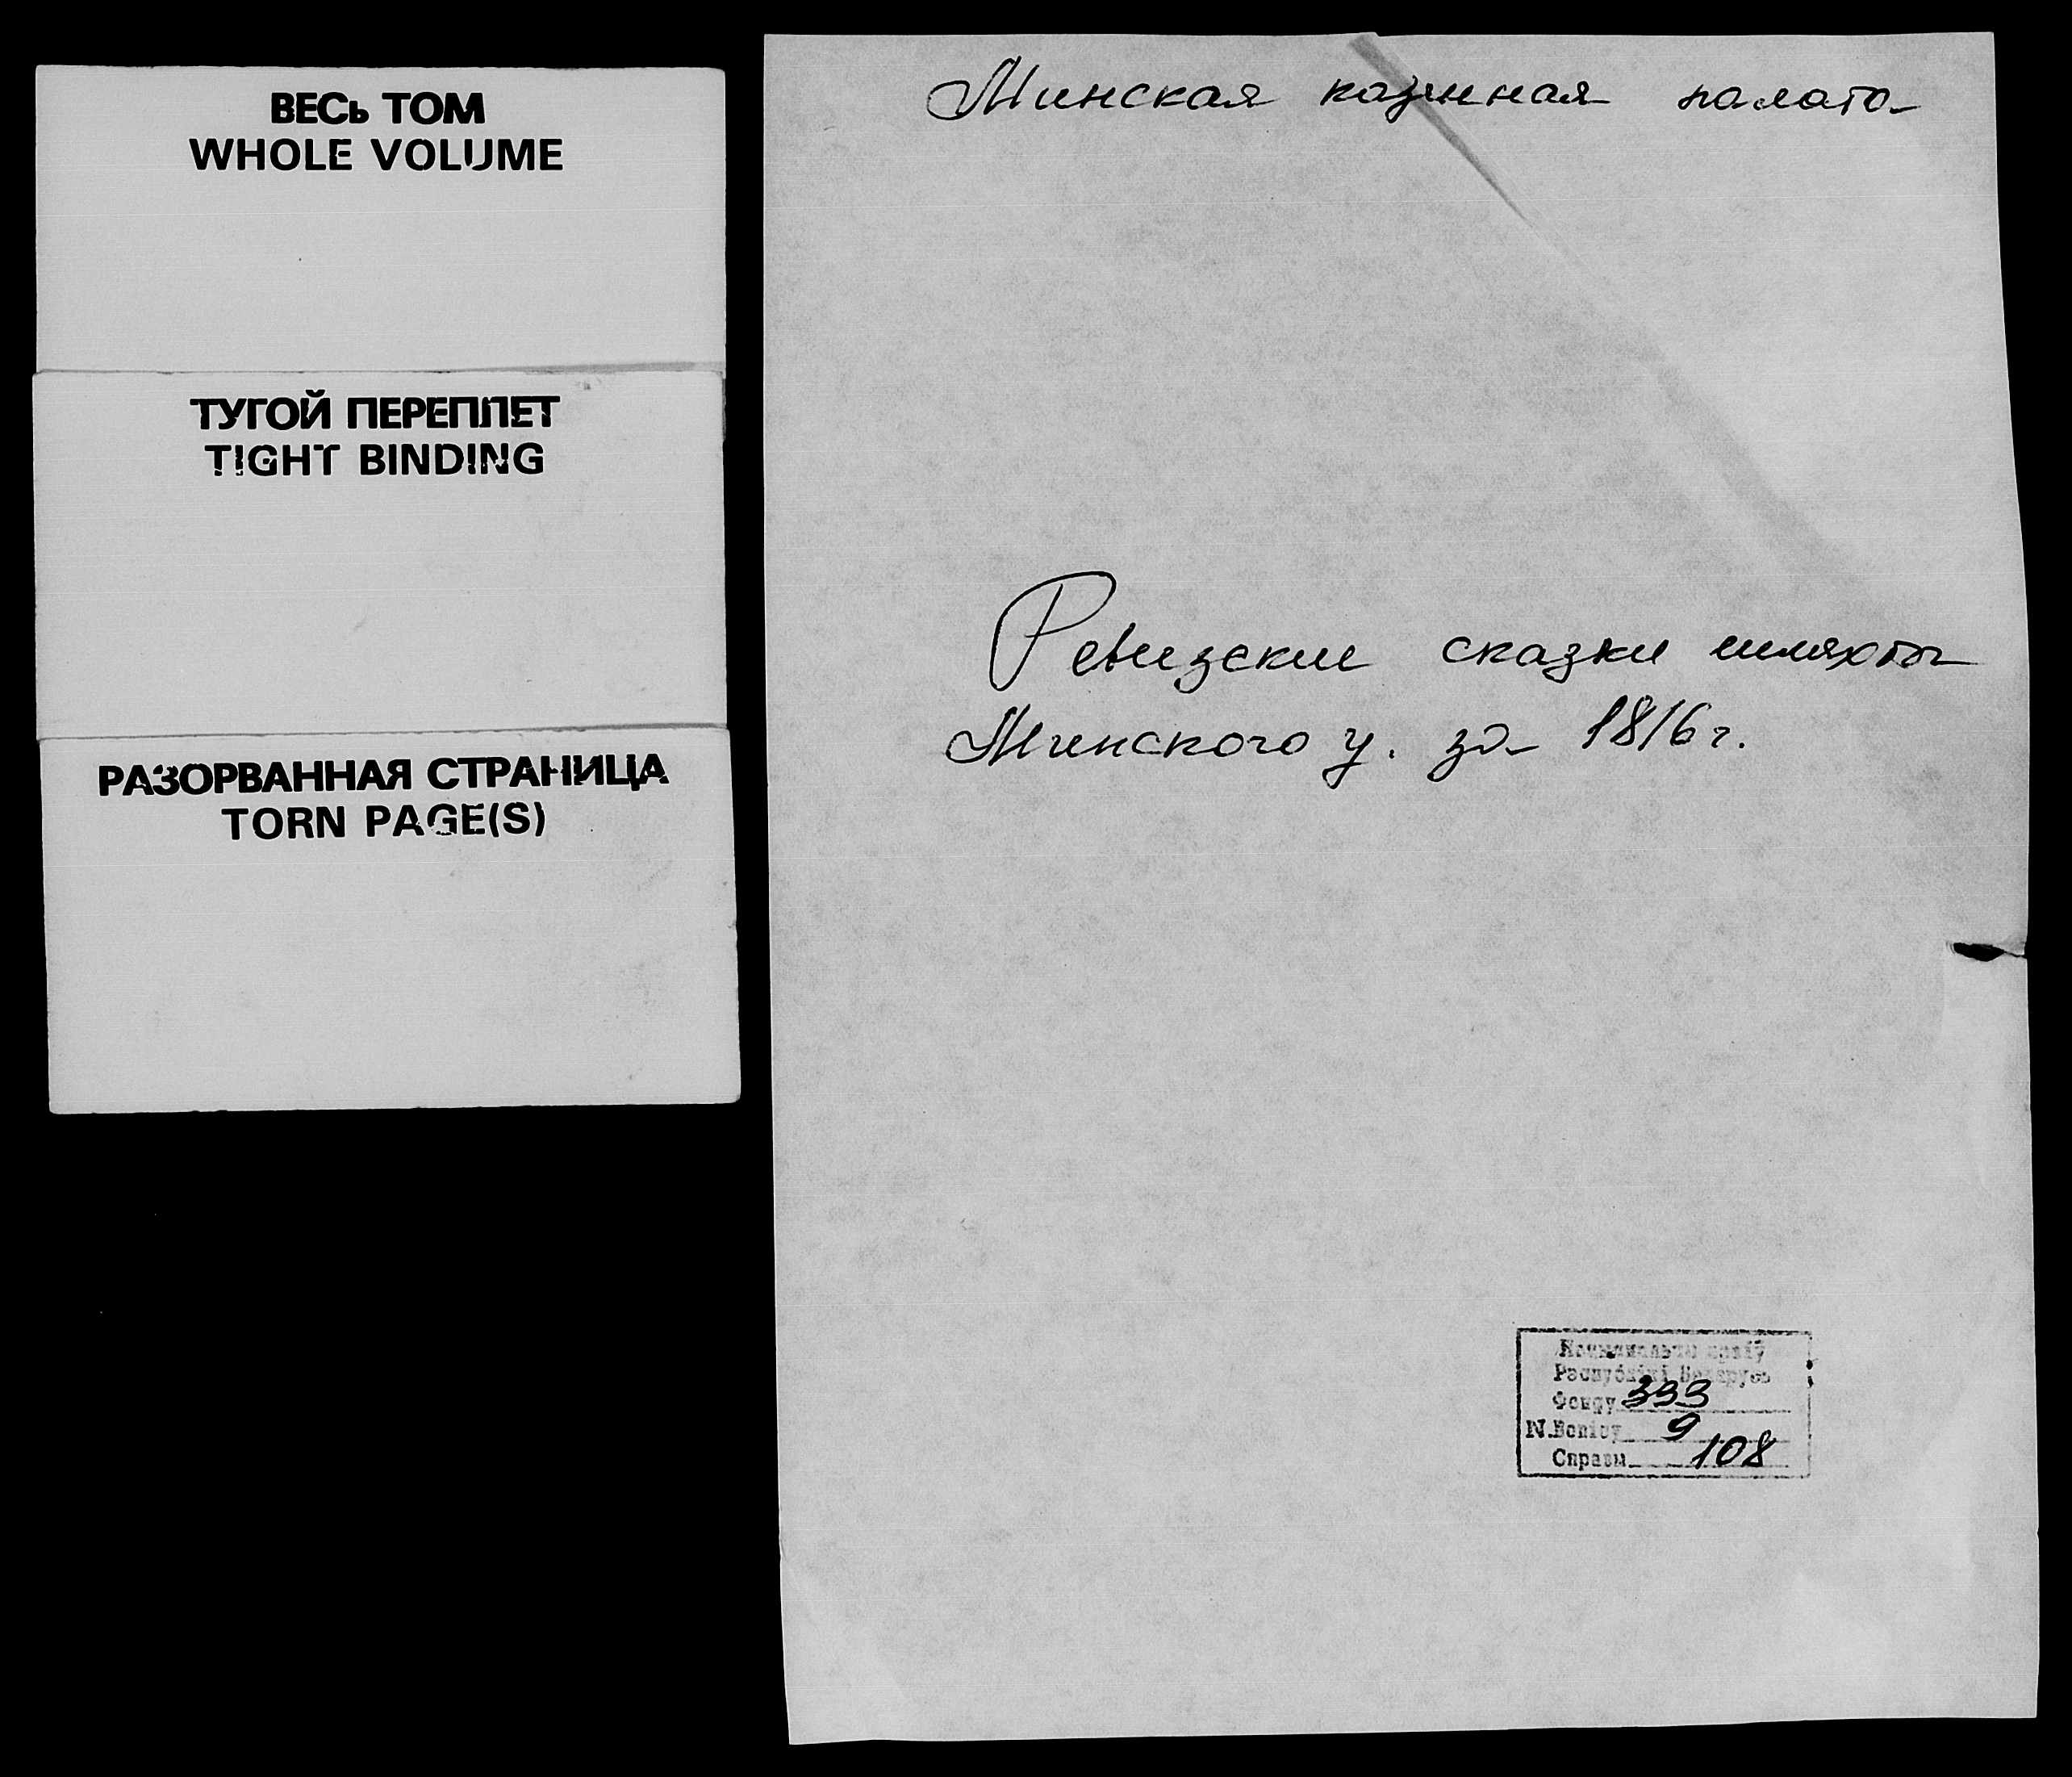 ВЕСЬ ТОМ
WHOLE VOLUME
ТУГОЙ ПЕРЕПЛЕТ
TIGHT BINDING
РАЗОРВАННАЯ СТРАНИЦА
TORN PAGE(S)
Минская казенная палата
Ревизские сказки шляхты
Минского у. за 1816 г.
Нацыянальны архіў
Рэспублікі Беларусь
Фонду 333
N. Вопісу 9
Справы 108